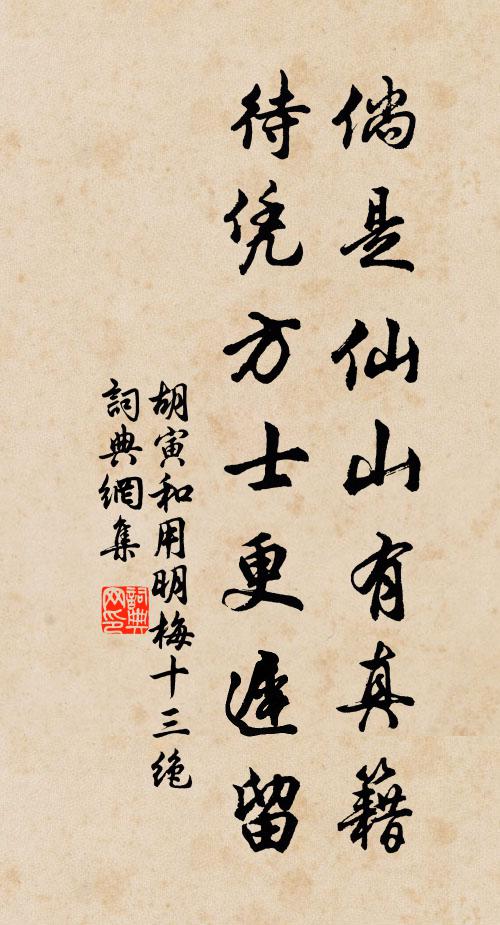 倘是仙山有真籍
待凭方士更遲留
胡寅和用明梅十三絶
詞典網集
詞典
网印